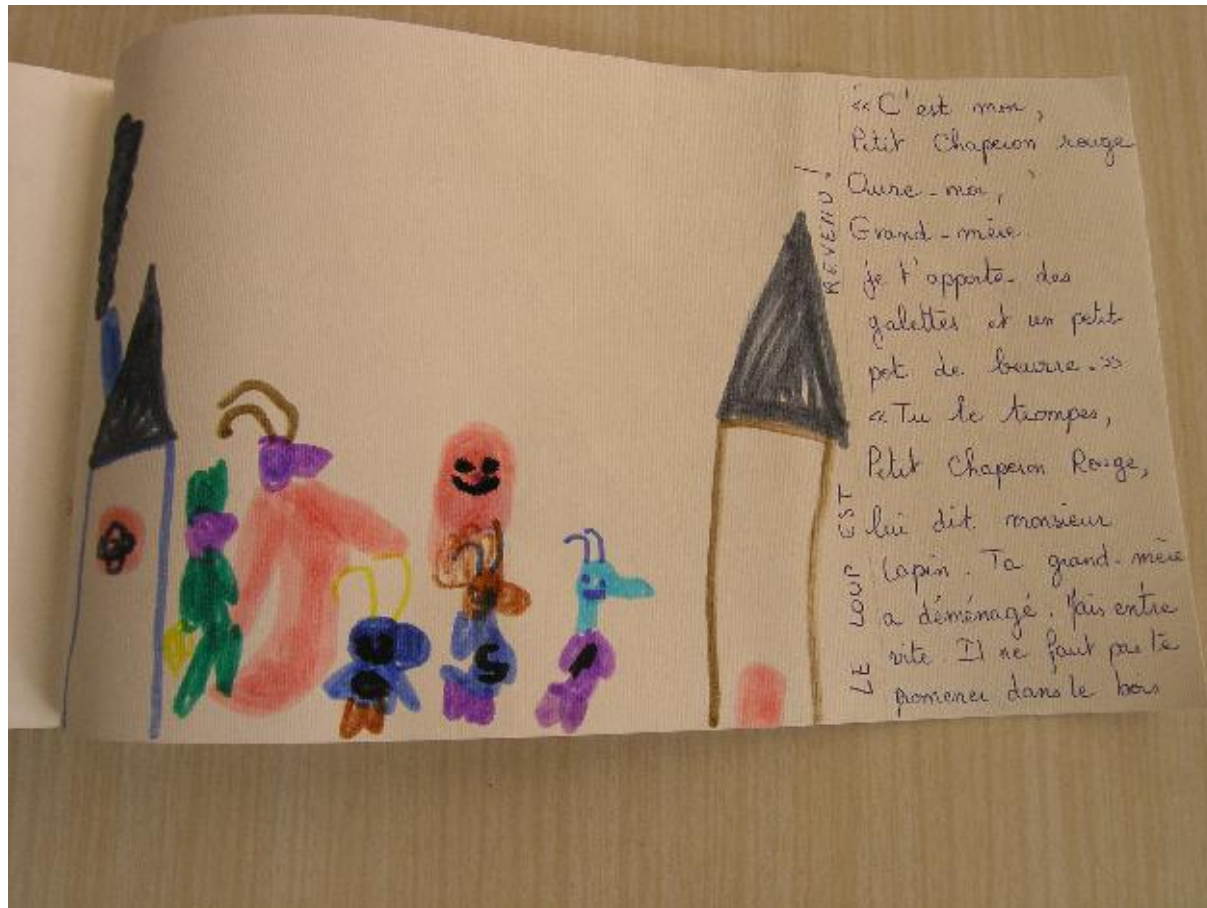 « C'est moi,
Petit Chaperon rouge
Ouvre-moi,
Grand-mère
je t'apporte des
galettes et un petit
pot de beurre. »
« Tu te trompes,
Petit Chaperon Rouge,
lui dit monsieur
Lapin. Ta grand-mère
a déménagé. Mais entre
vite. Il ne faut pas te
promener dans le bois
LE LOUP EST REVENU !